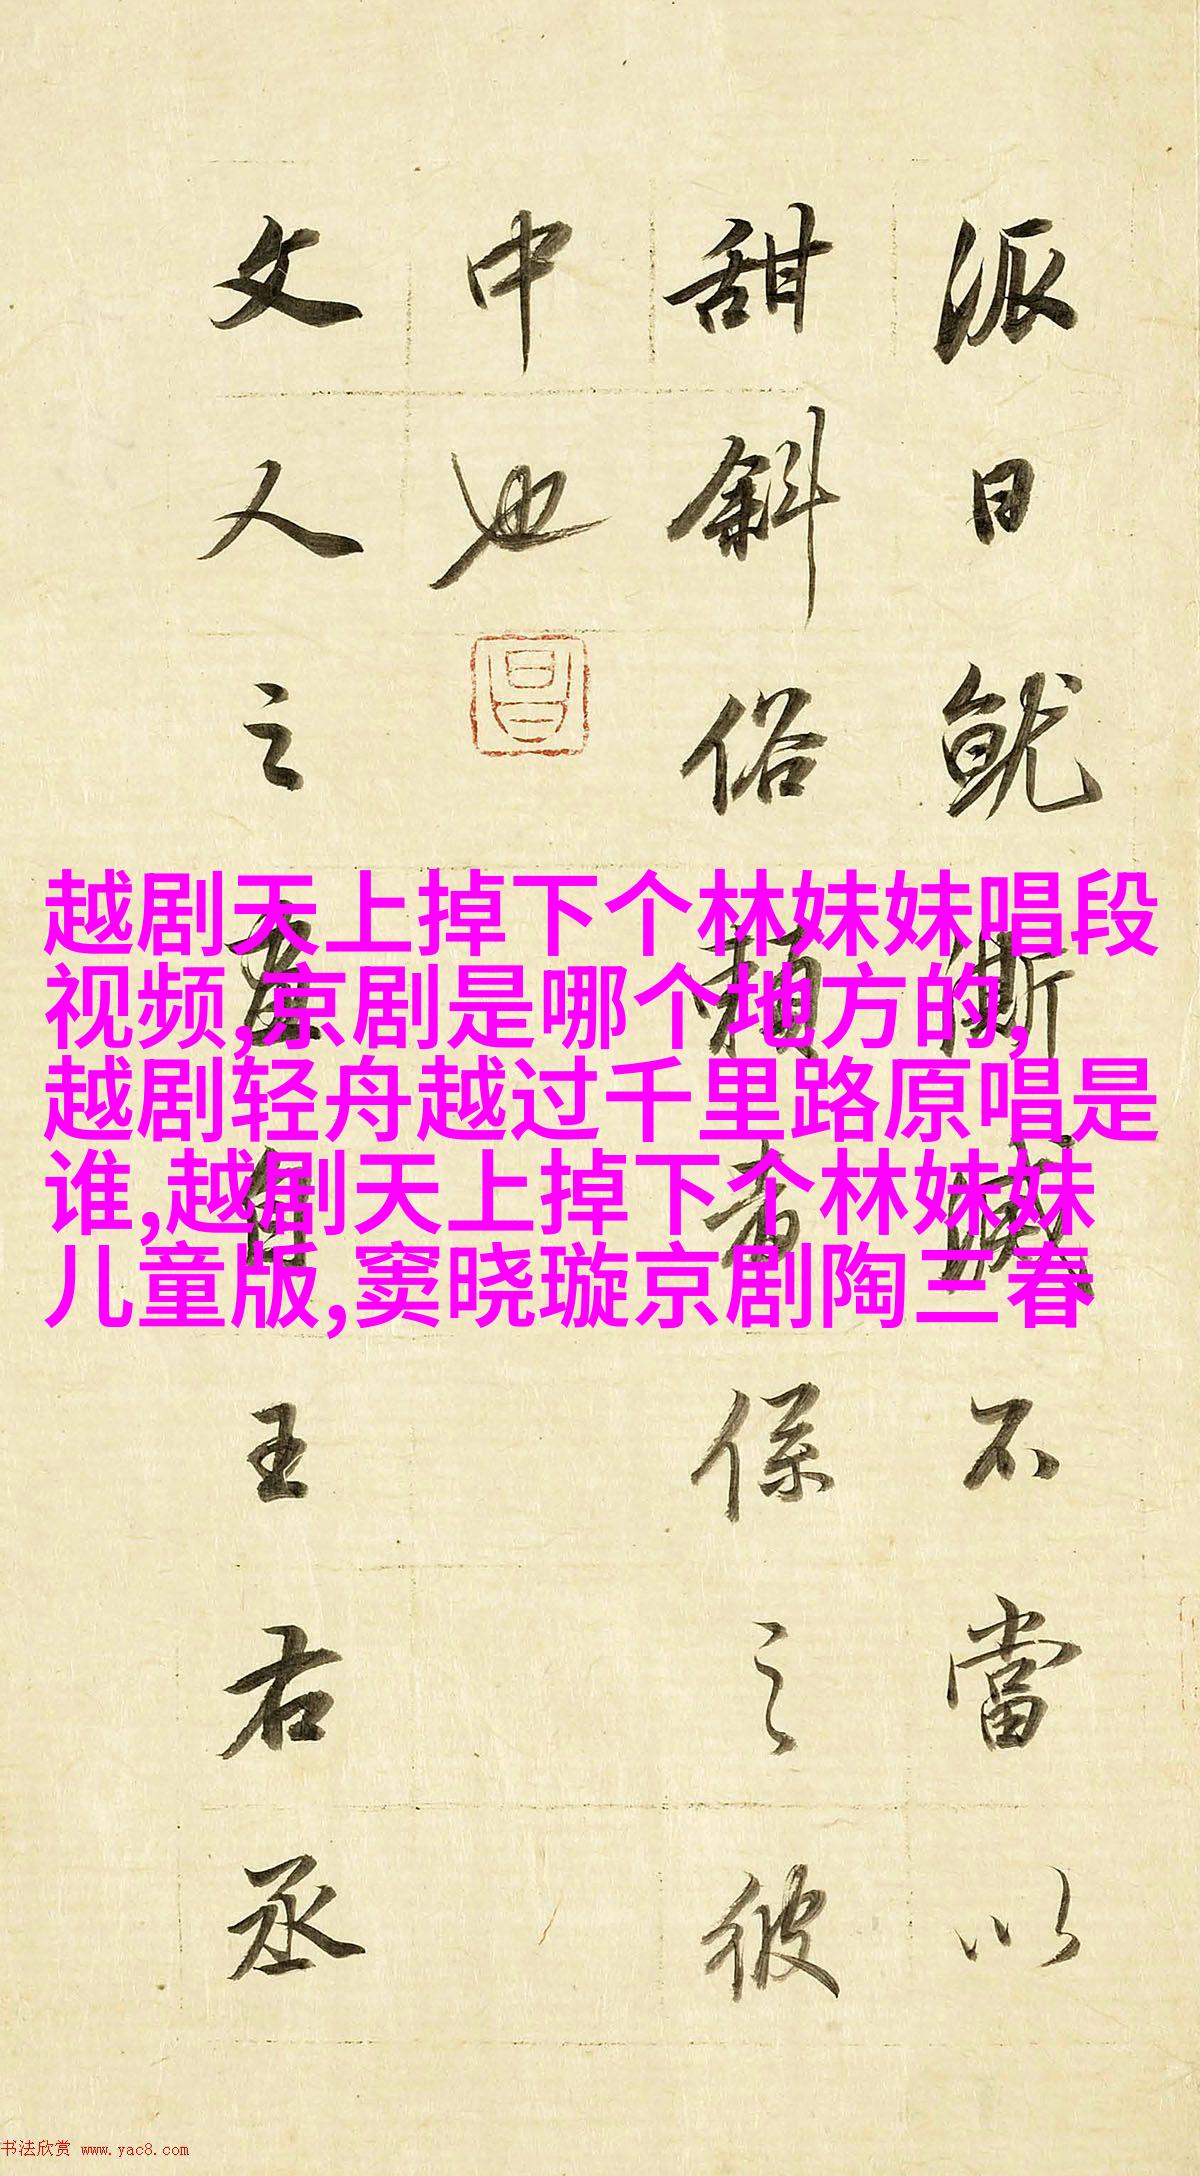 派日就澌滅不當以
甜斜俗賴者係之彼
中也
昌
文人之畫自王右丞
越剧天上掉下个林妹妹唱段
视频,京剧是哪个地方的,
越剧轻舟越过千里路原唱是
谁,越剧天上掉下个林妹妹
儿童版,窦晓璇京剧陶三春
书法欣赏 www.yac8.com